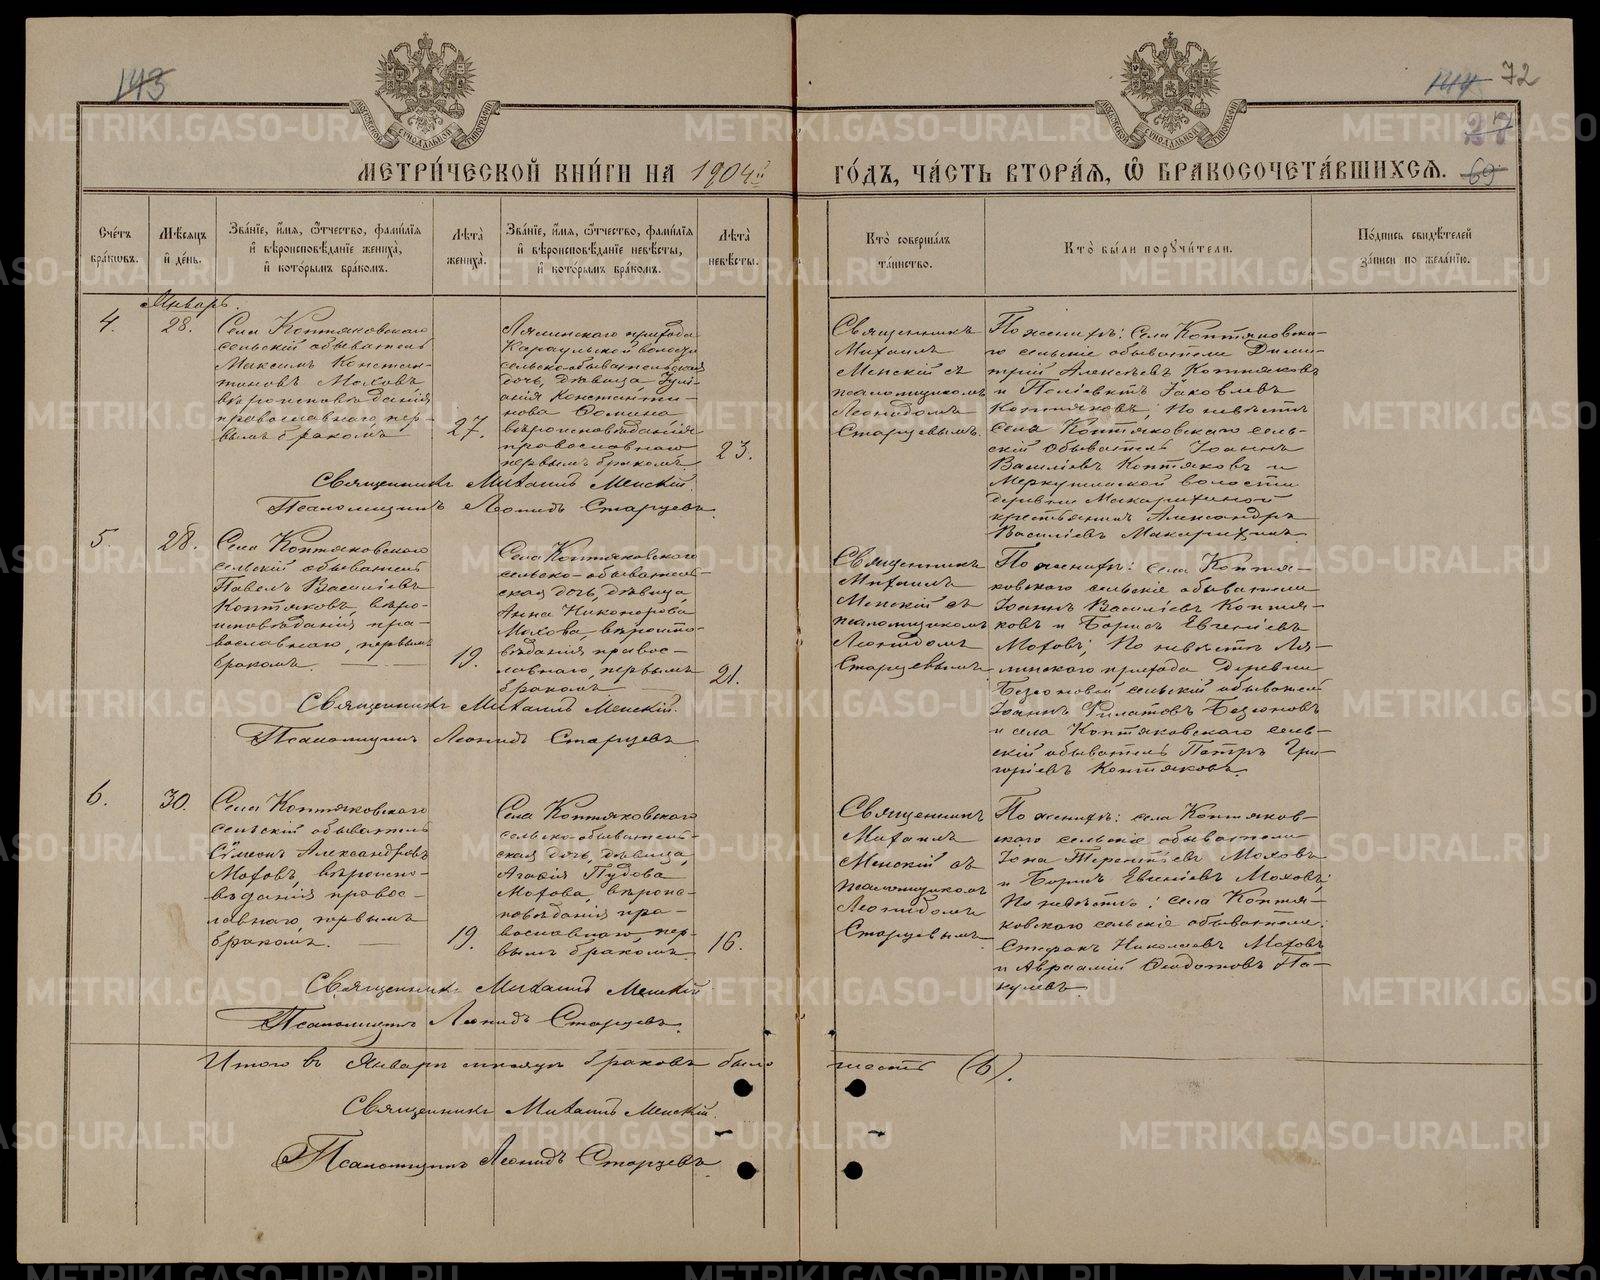 143
144 72
27
69
МЕТРИ́ЧЕСКОЙ КНИ́ГИ НА 1904й ГО́ДЪ, ЧА́СТЬ ВТОРА́Я, Ѿ БРАКОСОЧЕТА́ВШИХСЯ.
Сче́тъ
бра́ковъ.
Мѣ́сяцъ
и҆ де́нь.
Зва́нїе, и҆́мя, ѻ҆́тчество, фами́лїя
и҆ вѣроисповѣ́данїе жениха̀,
и҆ кото́рымъ бра́комъ.
Лѣ́та
жениха̀.
Зва́нїе, и҆́мя, ѻ҆́тчество, фами́лїя
и҆ вѣроисповѣ́данїе невѣ́сты,
и҆ кото́рымъ бра́комъ.
Лѣ́та
невѣ́сты.
Кто̀ соверша́лъ
та́инство.
Кто̀ бы́ли поручи́тели.
По́дпись свидѣ́телей
за́писи по жела́нїю.
Январь.
4.
28.
Села Коптяковскаго
сельскій обыватель
Максимъ Констан-
тиновъ Моховъ,
вѣроисповѣданія
православнаго, пер-
вымъ бракомъ
27.
Лялинскаго прихода
Караульской волости
сельско-обывательская
дочь, дѣвица, Іулі-
анія Константи-
нова Ѳомина
вѣроисповѣданія
православнаго
первымъ бракомъ.
23.
Священникъ
Михаилъ
Менскій съ
псаломщикомъ
Леонидомъ
Старцевымъ.
По женихѣ: села Коптяковска-
го сельскіе обыватели Дими-
трій Алексѣевъ Коптяковъ
и Поліевктъ Іаковлевъ
Коптяковъ; по невѣстѣ
села Коптяковскаго сель-
скій обыватель Іоаннъ
Василіевъ Коптяковъ и
Меркушинской волости
деревни Макарихиной
крестьянинъ Александръ
Василіевъ Макарихинъ
Священникъ Михаилъ Менскій.
Псаломщикъ Леонидъ Старцевъ.
5.
28.
Села Коптяковскаго
сельскій обыватель
Павелъ Василіевъ
Коптяковъ, вѣро-
исповѣданія пра-
вославнаго, первымъ
бракомъ.
19.
Села Коптяковскаго
сельско-обыватель-
ская дочь, дѣвица,
Анна Никонорова
Мохова, вѣроиспо-
вѣданія правос-
лавнаго, первымъ
бракомъ
21.
Священникъ
Михаилъ
Менскій съ
псаломщикомъ
Леонидомъ
Старцевымъ
По женихѣ: села Коптя-
ковскаго сельскіе обыватели
Іоаннъ Василіевъ Коптя-
ковъ и Борисъ Евгеніевъ
Моховъ; По невѣстѣ Ля-
линскаго прихода деревни
Безсоновой сельскій обыватель
Іоаннъ Филатовъ Безсоновъ
и села Коптяковскаго сель-
скій обыватель Петръ Гри-
горіевъ Коптяковъ.
Священникъ Михаилъ Менскій.
Псаломщикъ Леонидъ Старцевъ
6.
30.
Села Коптяковскаго
сельскій обыватель
Сѵмеонъ Александровъ
Моховъ, вѣроиспо-
вѣданія правос-
лавнаго, первымъ
бракомъ.
19.
Села Коптяковскаго
сельско-обыватель-
ская дочь, дѣвица,
Агаѳія Пудова
Мохова, вѣроис-
повѣданія пра-
вославнаго, пер-
вымъ бракомъ.
16.
Священникъ
Михаилъ
Менскій съ
псаломщикомъ
Леонидомъ
Старцевымъ
По женихѣ: села Коптяков-
скаго сельскіе обыватели
Іона Терентіевъ Моховъ
и Борисъ Евгеніевъ Моховъ;
По невѣстѣ: села Коптя-
ковскаго сельскіе обыватели:
Стефанъ Николаевъ Моховъ
и Авраамій Ѳеодотовъ Па-
кулевъ.
Священникъ Михаилъ Менскій
Псаломщикъ Леонидъ Старцевъ.
Итого въ Январѣ мѣсяцѣ браковъ было шесть (6).
Священникъ Михаилъ Менскій.
Псаломщикъ Леонидъ Старцевъ.